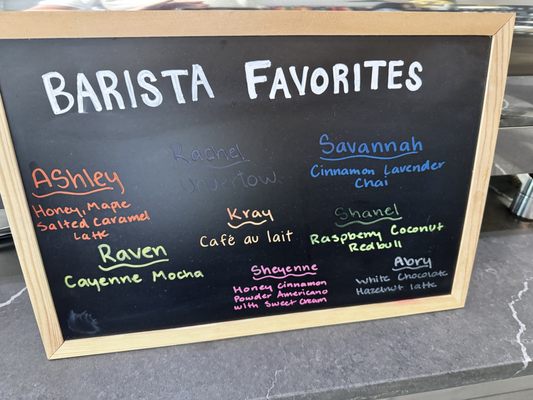 BARISTA FAVORITES
Ashley
Honey, Maple
Salted Caramel
Latte
Rachel
Undertow
Savannah
Cinnamon Lavender
Chai
Kray
Café au lait
Shanel
Raspberry Coconut
Redbull
Raven
Cayenne Mocha
Sheyenne
Honey Cinnamon
Powder Americano
with Sweet Cream
Abry
White Chocolate
Hazelnut latte